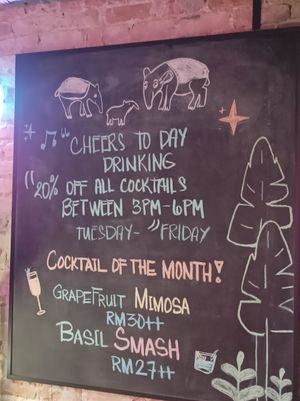 CHEERS TO DAY
DRINKING
"20% OFF ALL COCKTAILS
BETWEEN 3PM-6PM
TUESDAY-"FRIDAY
COCKTAIL OF THE MONTH!
GRAPEFRUIT MIMOSA
RM30++
BASIL SMASH
RM27++